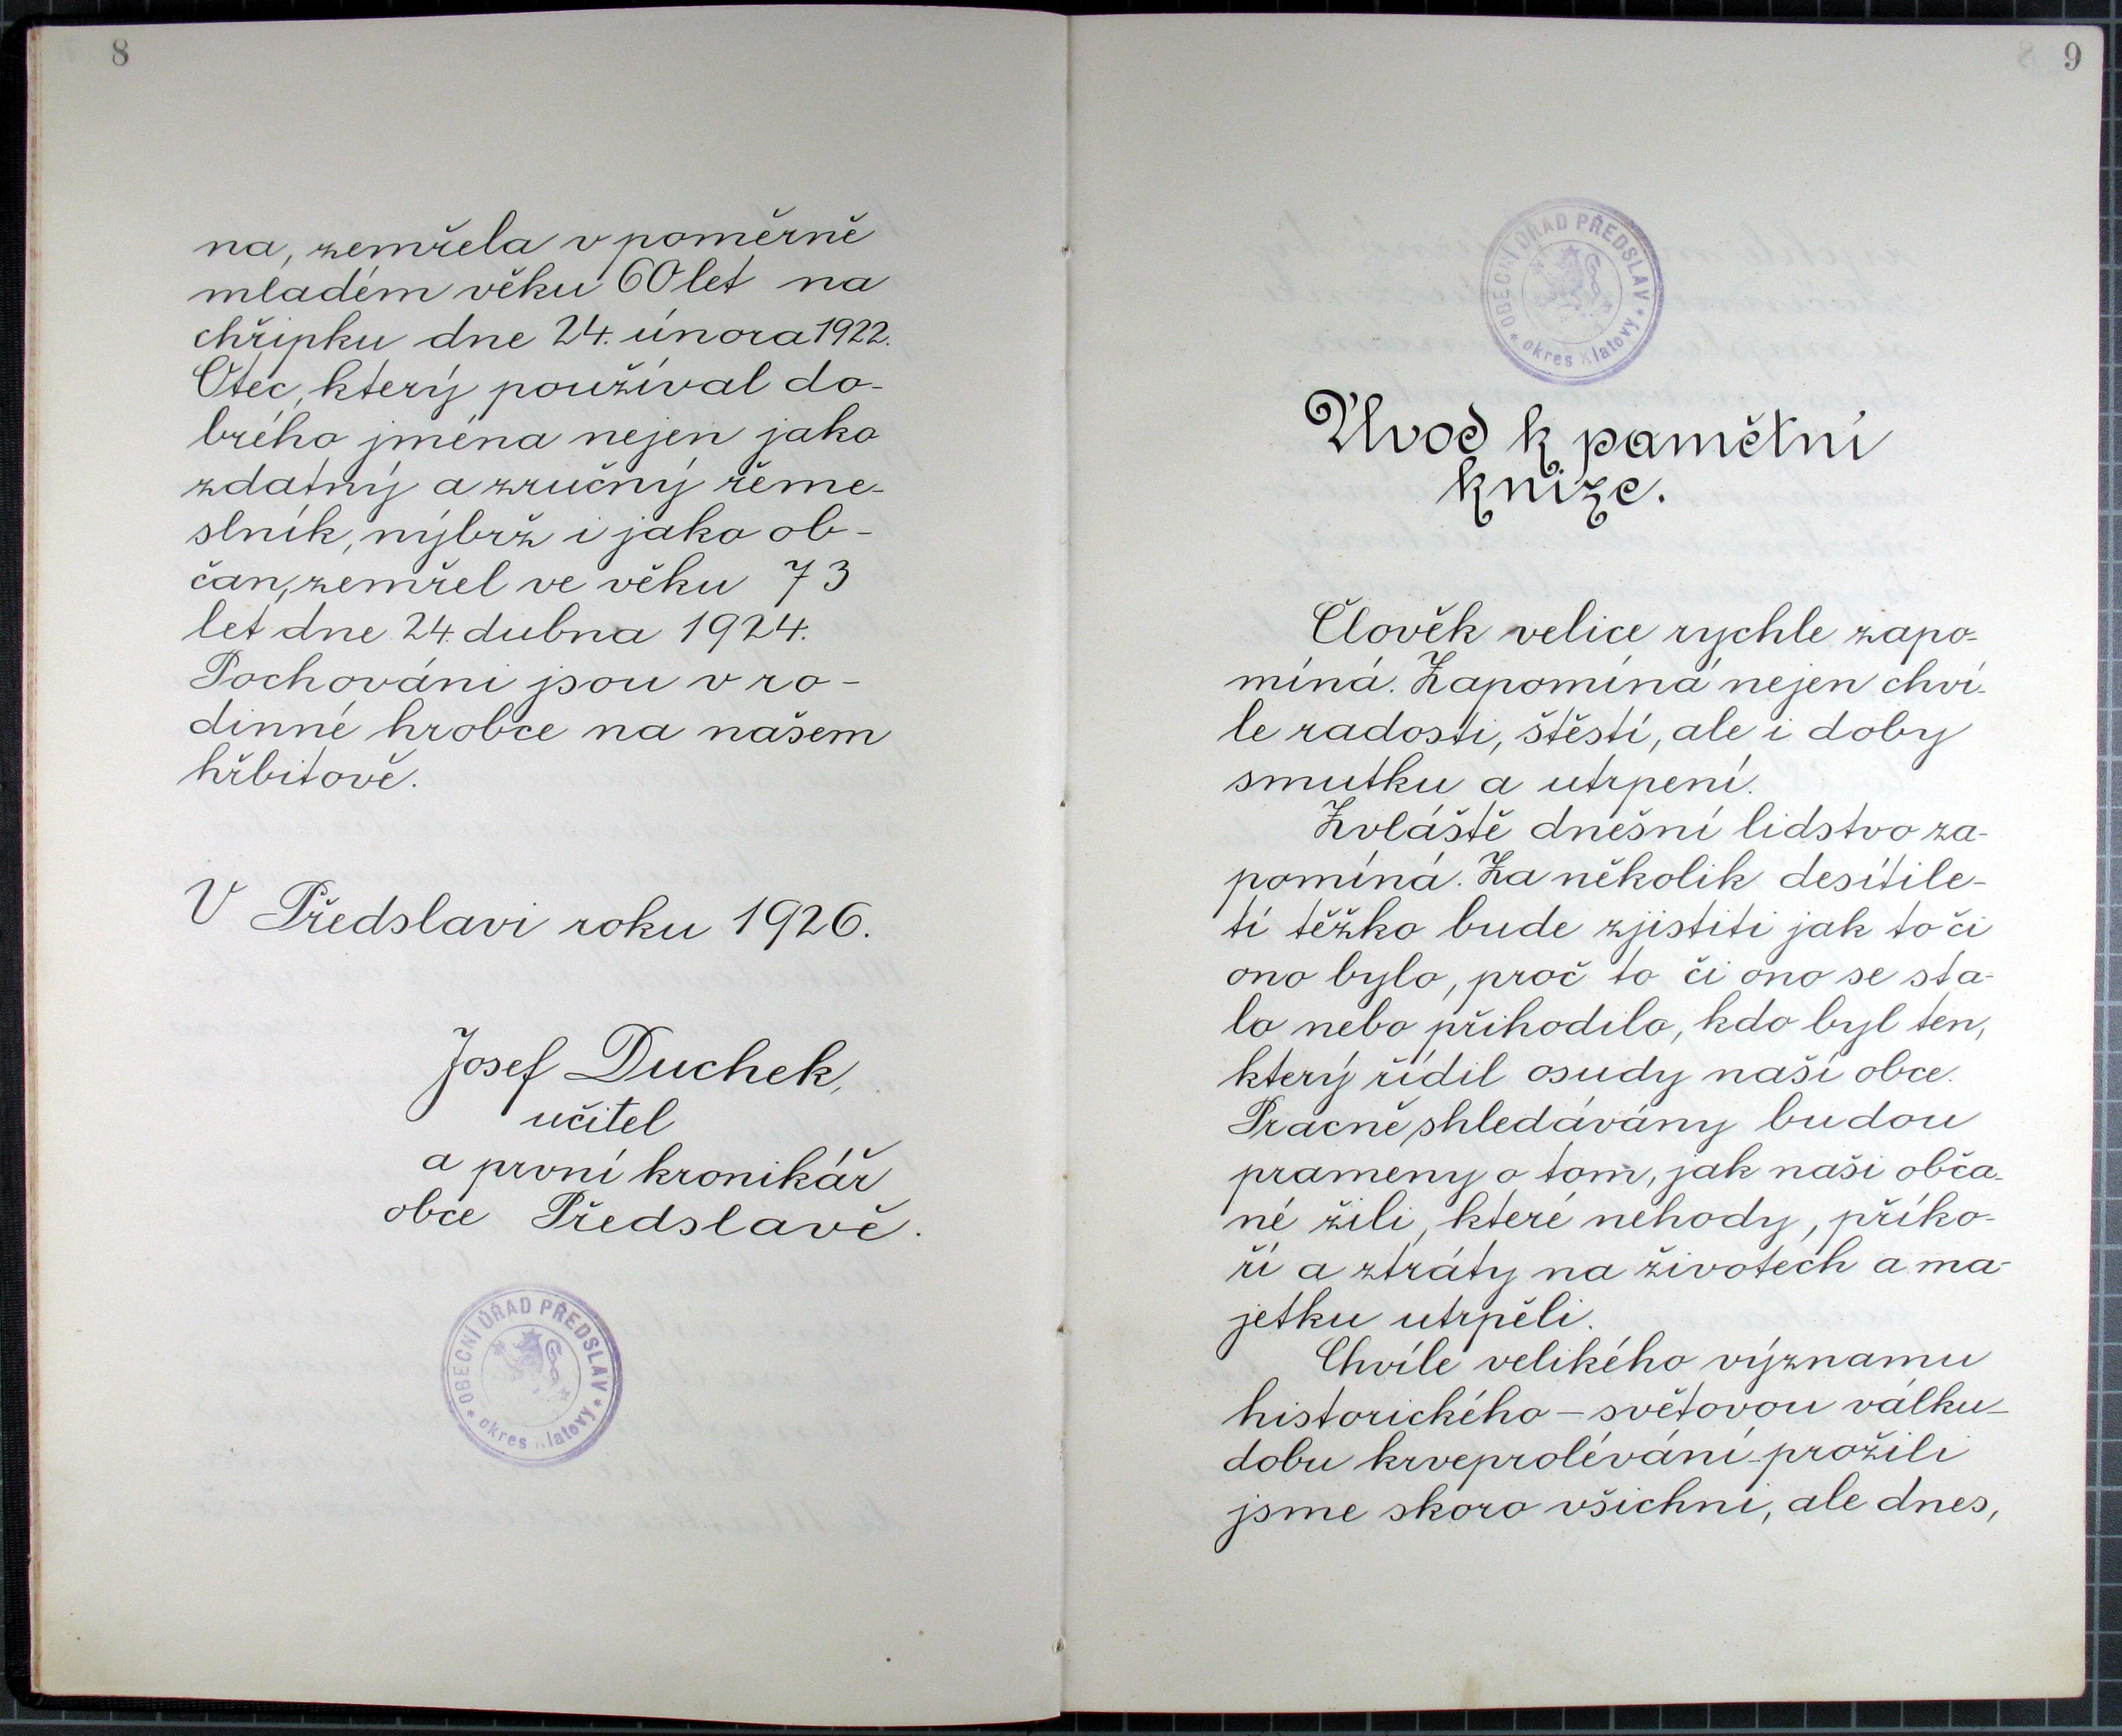 8
na, zemřela v poměrně
mladém věku 60 let na
chřipku dne 24. února 1922.
Otec, který používal do-
brého jména nejen jako
zdatný a zručný řeme-
slník, nýbrž i jako ob-
čan, zemřel ve věku 73
let dne 24. dubna 1924.
Pochováni jsou v ro-
dinné hrobce na našem
hřbitově.
V Předslavi roku 1926.
Josef Duchek,
učitel
a první kronikář
obce Předslavě.
OBECNÍ ÚŘAD PŘEDSLAV
* okres Klatovy *
9
OBECNÍ ÚŘAD PŘEDSLAV
* okres Klatovy *
Úvod k pamětní
knize.
Člověk velice rychle zapo-
míná. Zapomíná nejen chví-
le radosti, štěstí, ale i doby
smutku a utrpení.
Zvláště dnešní lidstvo za-
pomíná. Za několik desítile-
tí těžko bude zjistiti jak to či
ono bylo, proč to či ono se sta-
lo nebo přihodilo, kdo byl ten,
který řídil osudy naší obce.
Pracně shledávány budou
prameny o tom, jak naši obča-
né žili, které nehody, příko-
ří a ztráty na životech a ma-
jetku utrpěli.
Chvíle velikého významu
historického – světovou válku –
dobu krveprolévání – prožili
jsme skoro všichni, ale dnes,